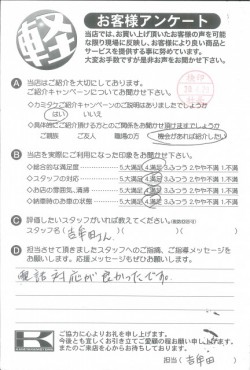 軽
お客様アンケート
当店では、お買い上げ頂いたお客様の声を可能
な限り現場に反映し、お客様により良い商品と
サービスを提供する事に努めています。
大変お手数ですが是非お声をお聞かせ下さい。
A 当店はご紹介を大切にしております。
ご紹介キャンペーンについてお聞かせ下さい。
◇カミタケご紹介キャンペーンのご説明はありましたでしょうか
はい いいえ
◇具体的にご紹介頂ける方とのご関係をお聞かせ頂けますでしょうか
ご親族 ご友人 職場の方 機会があれば紹介したい
B 当店を実際にご利用になった印象をお聞かせ下さい。
◇総合的な満足度 5.大満足 4.満足 3.ふつう 2.やや不満 1.不満
◇スタッフの対応 5.大満足 4.満足 3.ふつう 2.やや不満 1.不満
◇お店の雰囲気、清掃 5.大満足 4.満足 3.ふつう 2.やや不満 1.不満
◇納車時のお車の状態 5.大満足 4.満足 3.ふつう 2.やや不満 1.不満
C 評価したいスタッフがいれば教えてください。
スタッフ名( 吉牟田さん )
D 担当させて頂きましたスタッフへのご感想、ご指導メッセージを
お願いします。応援メッセージもぜひお願いします。
電話対応が良かったです。
K
ご協力に心よりお礼を申し上げます。
今後とも宜しくお引き立てご愛顧の程お願い申し上げます。
またのご来店を心からお待ちしております。
担当( 吉牟田 )